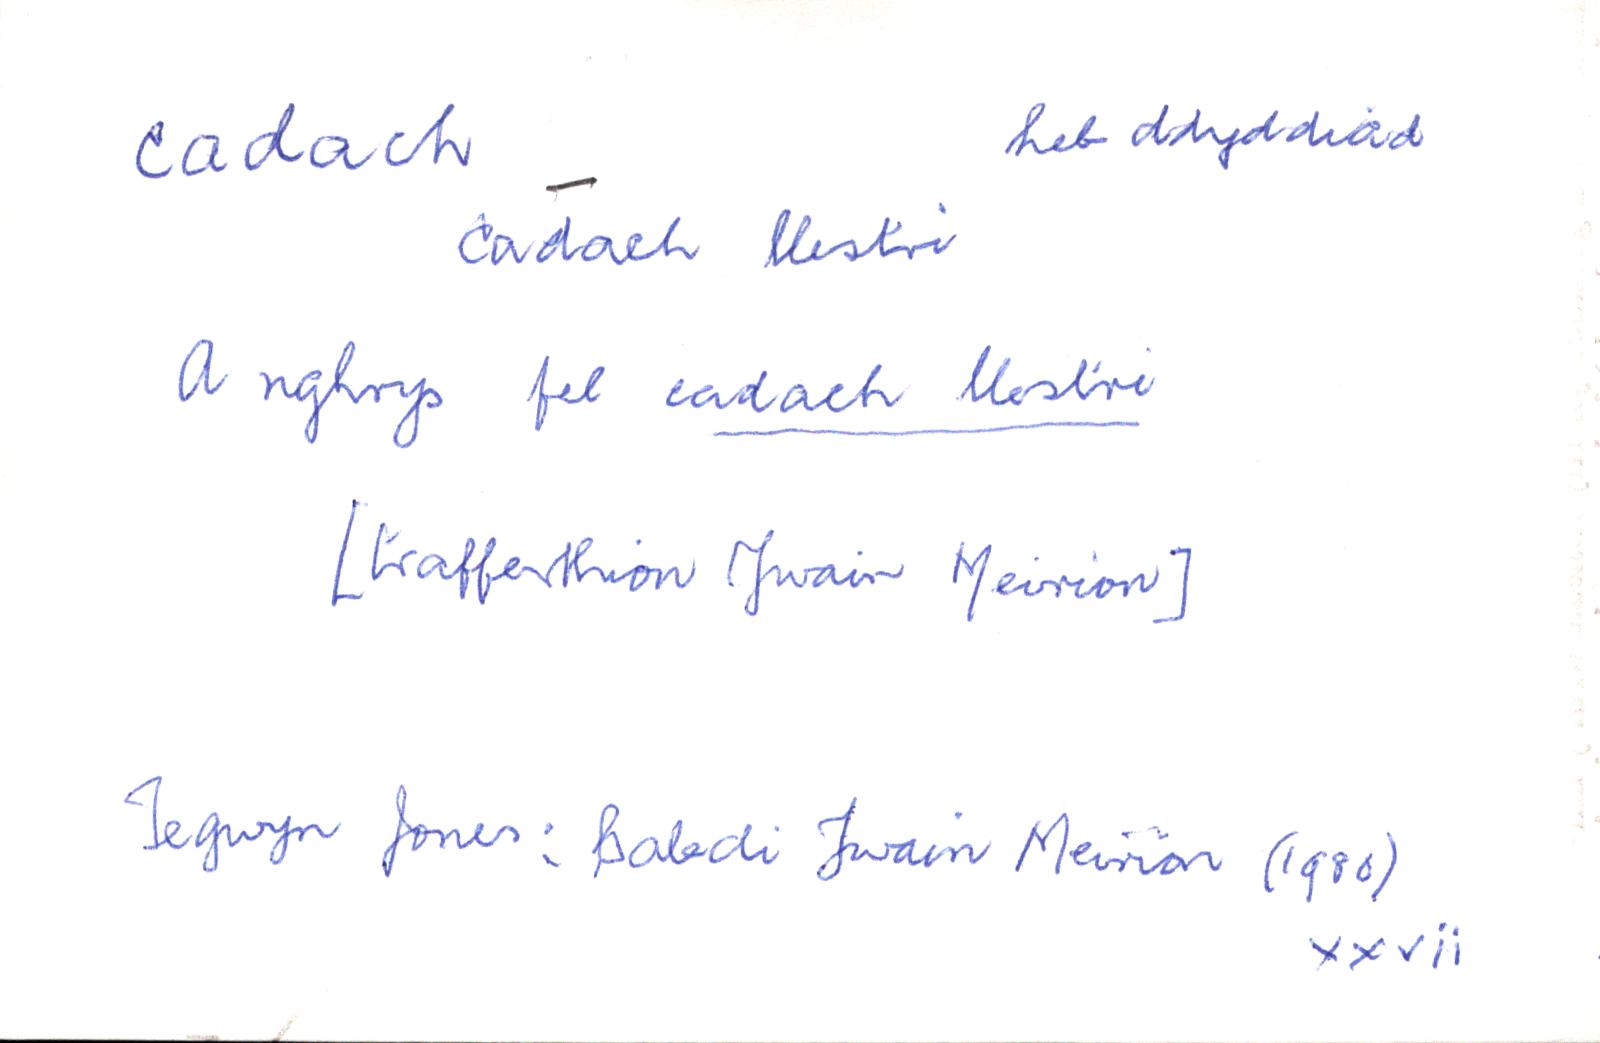 cadach heb ddyddiad
cadach llestri
A nghrys fel cadach llestri
[trafferthion Ywain Meirion]
Tegwyn Jones: Baledi Ywain Meirion (1980)
xxvii